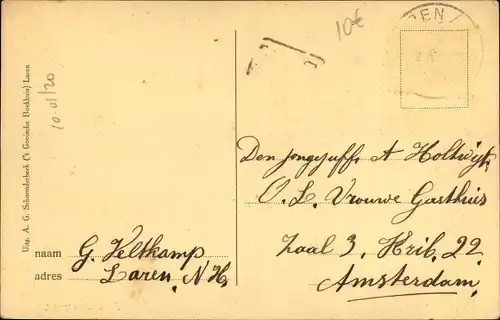 10€
DEN
Uitg. A. G. Schoonderbeek ('t Gooische Boekhuis) Laren
10/01/20
Den jongejuff. A Holtwijk
O. L. Vrouwe Gasthuis
Zaal 3, Krib. 22
Amsterdam
naam G. Veltkamp
adres Laren, N H.